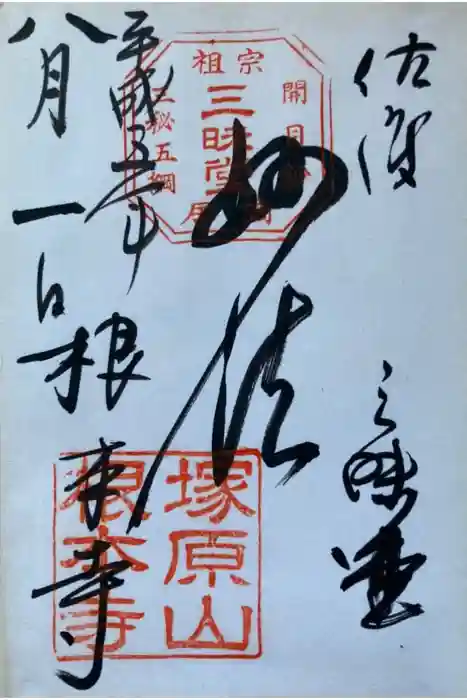 佐渡
三昧堂
妙法
平成五年
八月一日
根本寺
宗祖
三昧堂
開目鈔
三秘五綱
塚原山
根本寺